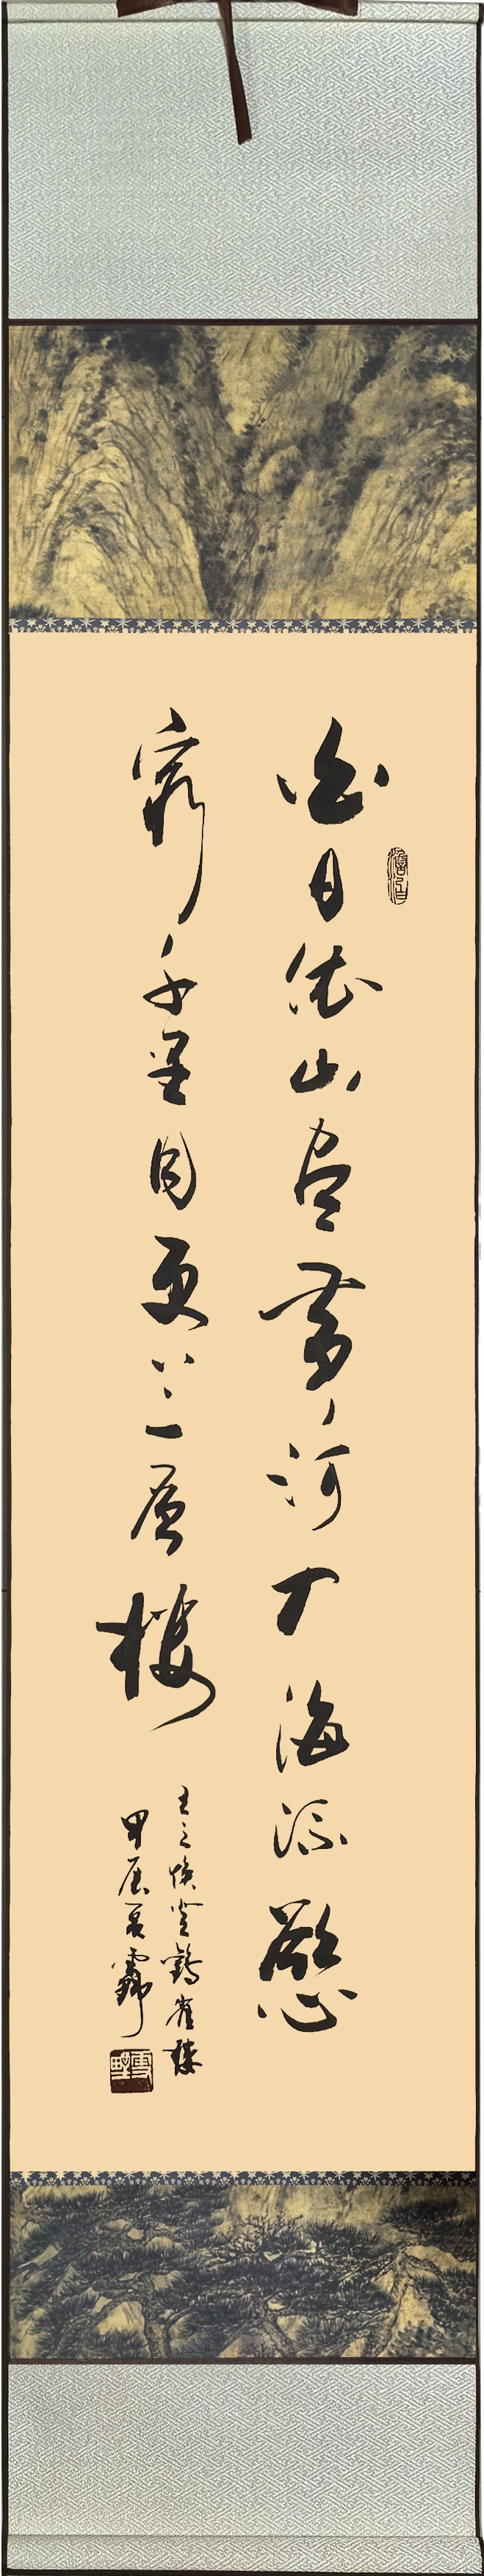 白日依山尽黄河入海流慾
穷千里目更上一层楼
王之涣登鹳雀楼
甲辰夏